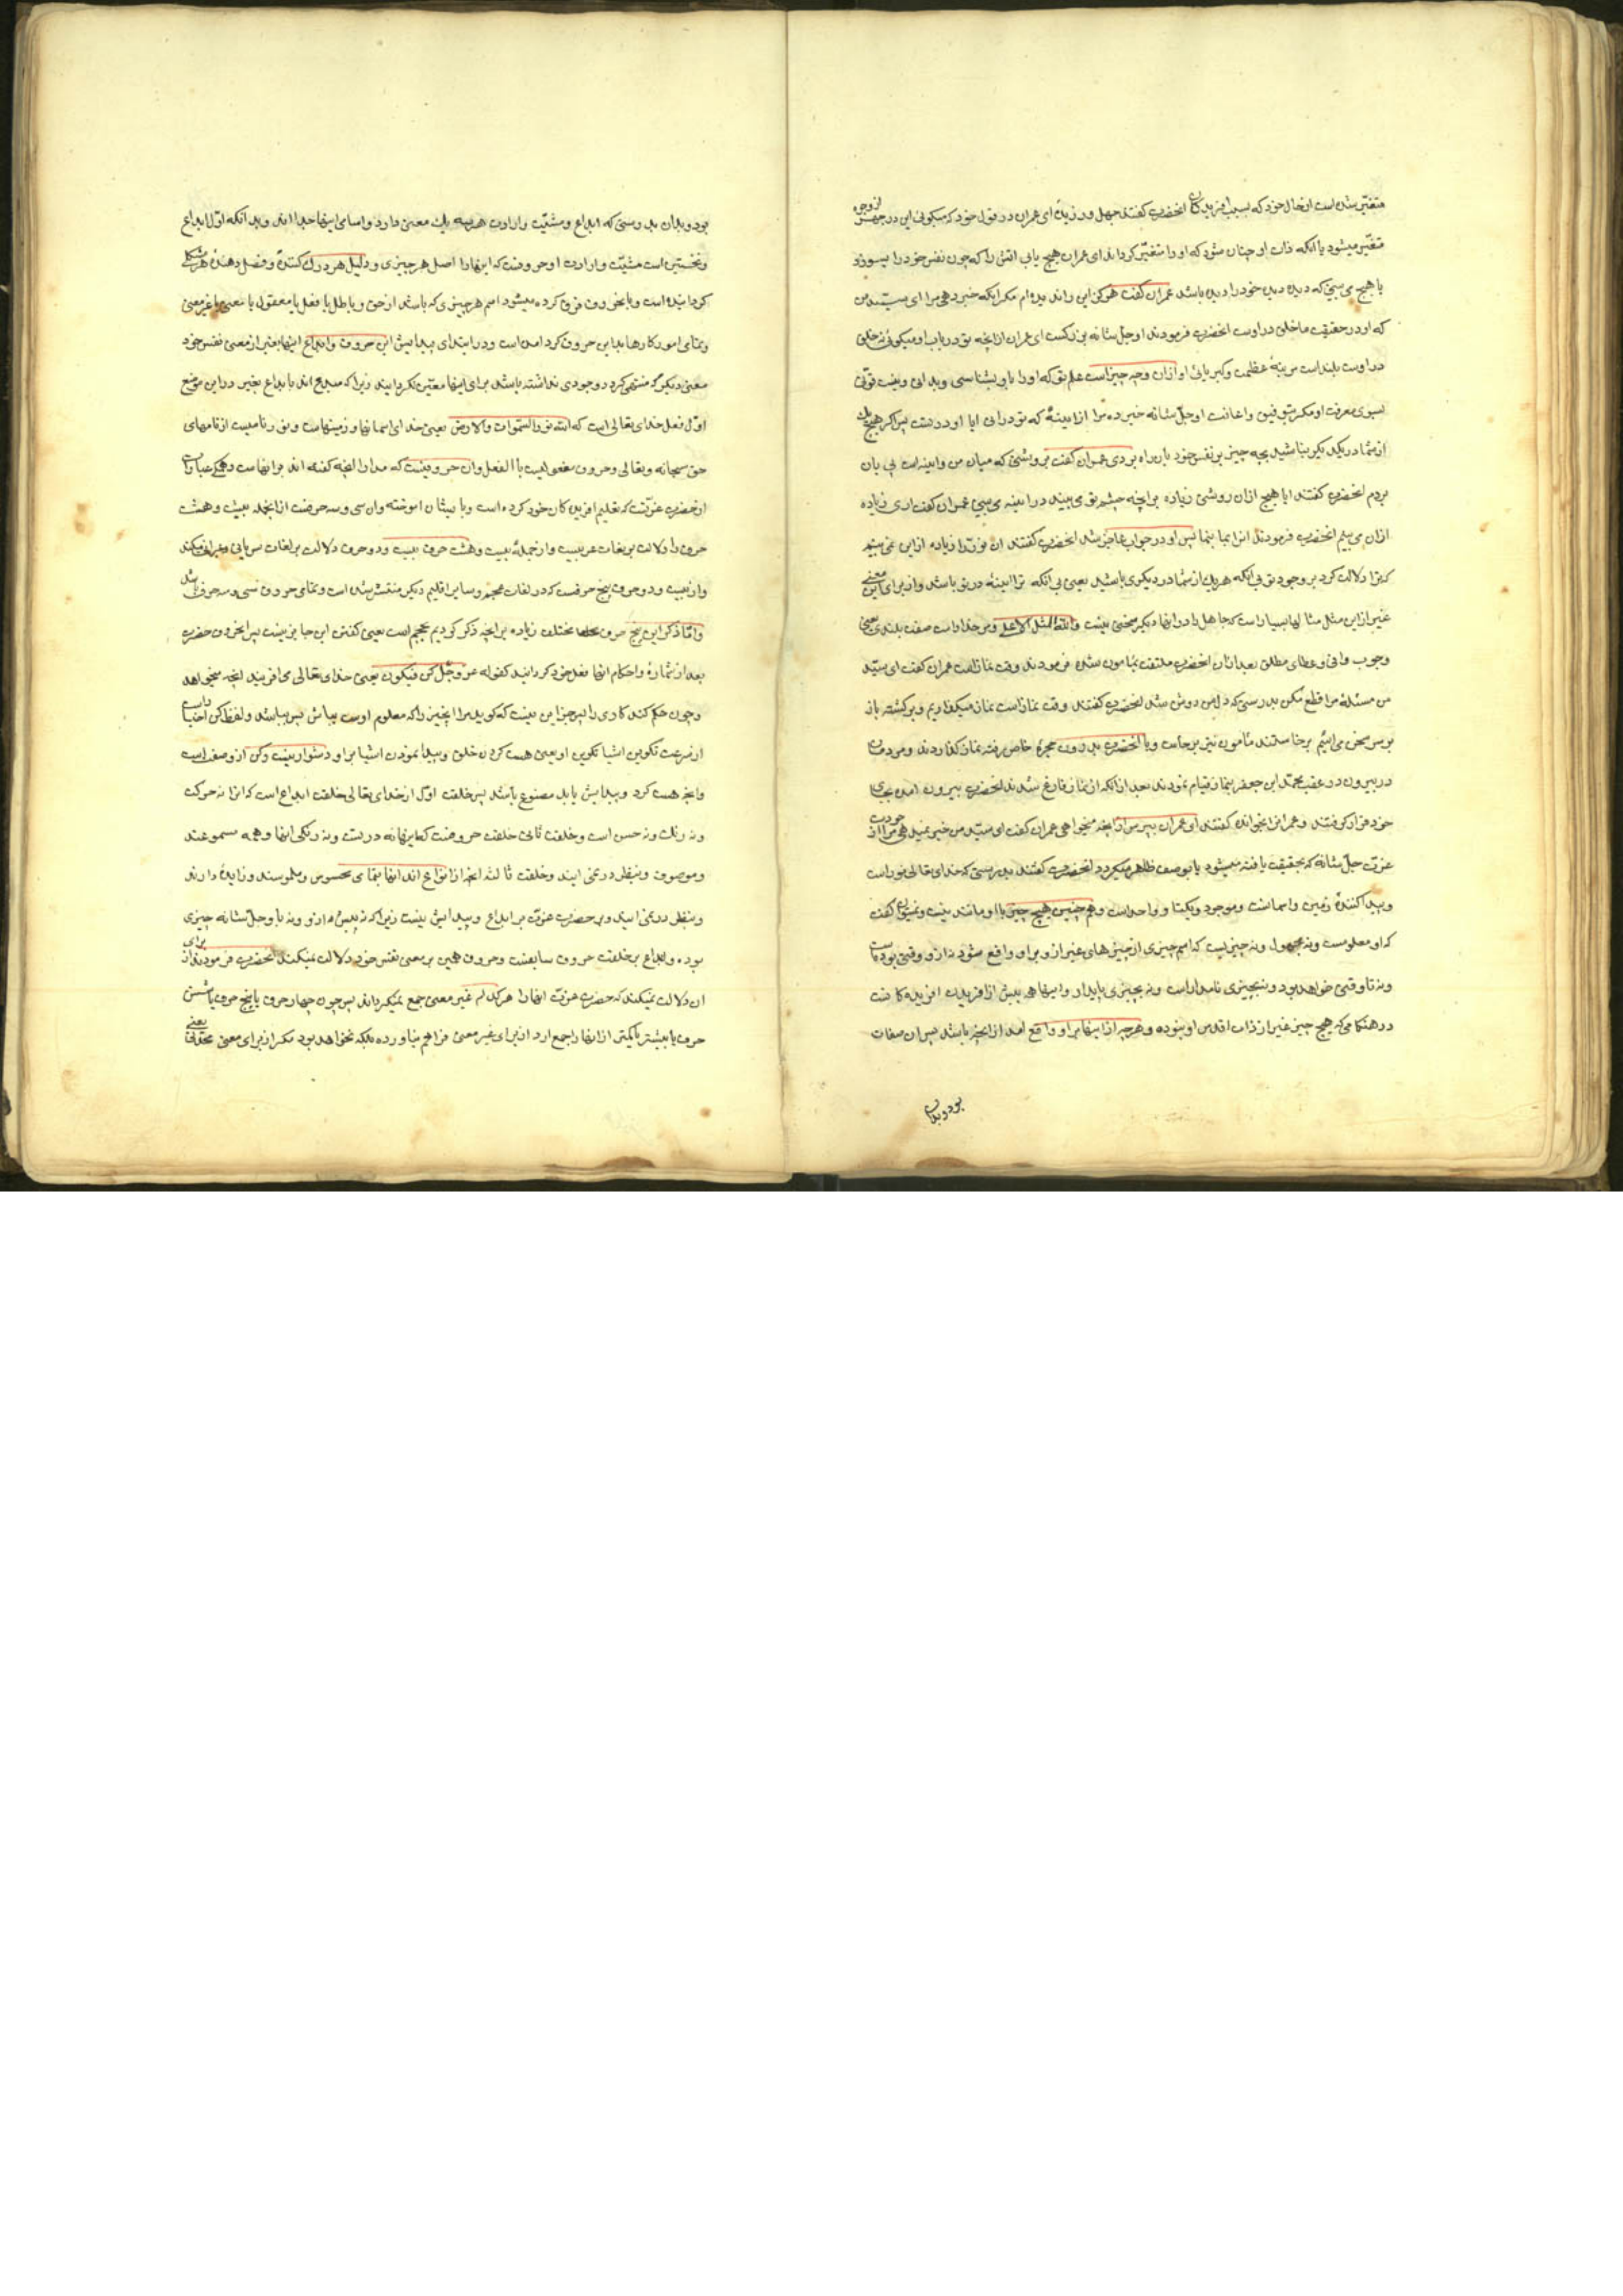 متغیّر شده است از حال خود که بسبب آفریدن کان آنحضرت گفتند جهل ورزیدهٔ ای عمران در قول خود که میکوئی این در جهتی از وجوه
متغیّر میشود یا آنکه ذات او چنان شود که او را متغیّر کرداند ای عمران هیچ یاب آتش را که چون نفس خود را بسوزد
یا هیچ می بینی که دیده دیدن خود را دیده باشد عمران گفت هرکز این را ندیده ام مکر اینکه خبر دهی مرا ای سیّد من
که او در حقیقت ما خلق در اوست آنحضرت فرمودند او جلّ شانه بزرکست ای عمران از آنچه تو در باب او میکوئی نه خلق
در اوست بلند است مرتبهٔ عظمت و کبریائی او از آن وجه چیز است علم تو که او را باو بشناسی و بدانی و نیست قوتی
بسوی معرفت او مکر بتوفیق و اعانت او جلّ شانه خبر ده مرا از آیینهٔ که تو در آنی آیا او در تست پس اکر هیچ یک
از شما در یکدیکر نباشید بچه چیز بر نفس خود بآن راه بردی عمران گفت بروشنی که میان من و آیینه است پی بآن
بردم آنحضرت گفتند آیا هیچ از آن روشنی زیاده بر آنچه چشم تو می بیند در آیینه می بینی عمران گفت آری زیاده
از آن می بینم آنحضرت فرمودند آنرا بما بنما پس او در جواب عاجز شد آنحضرت گفتند آن نور ترا زیاده از این نمی بینم
که ترا دلالت کرد بر وجود تو بی آنکه هر یک از شما در دیکری باشید یعنی بی آنکه ترا آیینه در تو باشد و از برای این معنی
غیر از این مثل مثالها بسیار است که جاهل را در آنها دیکر سخنی نیست و لله المثل الاعلی و مر خدا راست صفت بلندی یعنی
وجوب وافی و عطای مطلق بعد از آن آنحضرت ملتفت بمامون شده فرمودند وقت نماز است عمران گفت ای سیّد
من مسئلهٔ مرا قطع مکن بدرستی که دل من روشن شد آنحضرت گفتند وقت نماز است نماز میکذاریم و برکشته باز
بر سر سخن می آئیم برخاستند مأمون نیز برخاست و با آنحضرت بدرون حجرهٔ خاص رفته نماز کذاردند و مردمان
در بیرون در عقب محمّد ابن جعفر بنماز قیام نمودند بعد از آنکه از نماز فارغ شدند آنحضرت بیرون آمده بجای
خود قرار کرفتند و عمران را بخوانده گفتند ای عمران بپرس از آنچه میخواهی عمران گفت ای سیّد من خبر نمیدهی مرا از حضرت
عزت جلّ شانه که بحقیقت یافته میشود یا بوصف ظاهر میکردد آنحضرت گفتند بدرستی که خدای تعالی نور است
و پیدا کنندهٔ زمین و آسمانست و موجود و یکتا و واحد است و هم چنین هیچ چیز با او مانند نیست و نمیتوان گفت
که او معلومست و نه مجهول و نه چیزیست که اسم چیزی از چیزهای غیر از او بر او واقع شود نه از وقتی بوده است
و نه تا وقتی خواهد بود و نه بچیزی نامدار است و نه بچیزی پایدار و اینها همه پیش از آفریدن آفریده کانست
در هنکامی که هیچ چیز غیر از ذات اقدس او نبوده و هر چه از اینها بر او واقع آمد از آنچه باشد پس آن صفات
بود و بدان
بود و بدان بدرستی که ابداع و مشیّت و ارادت هر سه یک معنی دارد و اسامی اینها جدا اند و بدانکه اوّل ابداع
و نخستین است مشیّت و ارادت او حروفست که اینها را اصل هر چیزی و دلیل هر درک کننده و فصل دهنده هر مشکلی
کردانیده است و باین حروف فرق کرده میشود اسم هر چیزی که باشد از حق و باطل یا فعل یا مفعول یا معنی یا غیر معنی
و تمامی امور کارها با این حروف کرد آمده است و در ابتدای پیدایش این حروف و ابداع اینها بغیر از معنی نفس خود
معنی دیکر که منتهی کردد وجودی نداشته باشد برای اینها معیّن نکردانید زیرا که مبدع اند بابداع بغیر در این موضع
اوّل فعل خدای تعالی است که الله نور السّموات والارض یعنی خدای آسمانها و زمینهاست و نور نامیست از نامهای
حق سبحانه و تعالی و حروف مفعولیست بآن الفعل و آن حروفیست که مدار آنچه گفته اند بر آنهاست و همکی عبارات
از حضرت عزّتست که تعلیم آفریده کان خود کرده است و بایشان آموخته و آن سی و سه حرفست از آنجمله بیست و هشت
حرف را دلالت بر لغات عربیست و از جملهٔ بیست و هشت حرف بیست و دو حرف دلالت بر لغات سریانی و عبرانی میکند
و از بیست و دو حرف پنج حرفست که در لغات عجم و سایر اقلیم دیکر منتشر شده است و تمامی حروف سی و سه حرف شد
و امّا ذکر این پنج حرف مختلف زیاده بر آنچه ذکر کردیم عجم است یعنی گفتن این جایز نیست پس آنحروف حضرت
بعد از شماره و احکام آنها فعل خود کردانید کقوله عزّ وجلّ کن فیکون یعنی خدای تعالی می آفریند آنچه میخواهد
و چون حکم کند کاری را پس جز این نیست که کوید مر آنچیز را که معلوم اوست بباش پس بباشد و لفظ کن
از سرعت تکوین اشیا تکوین او یعنی هست کردن خلق و پیدا نمودن اشیا بر او دشوار نیست و کن از وصف است
و آنچه هست کرد و پیدایش یابد مصنوع باشد پس خلقت اوّل از خدای تعالی خلقت ابداع است که آنرا نه حرکت
و نه رنک و نه حس است و خلقت ثانی خلقت حروفست که نه وزنست و نه رنکی آنها و همه مسموعند
و موصوف و بنظر در نمی آیند و خلقت ثالثه آنچه از انواع اند آنها بتمامی محسوس و ملموسند و زایده دارند
و بنظر در می آیند و حضرت عزّت بر ابداع و پیدایش نیست زیرا که نه پیش از او و نه با او جلّ شانه چیزی
بوده و ابداع بر خلقت حروف سابقست و حروف همین بر معنی نفس خود دلالت نمیکنند آنحضرت فرمودند از برای
آن دلالت نمیکنند که حضرت عزّت آنها را هرکز له غیر معنی جمع نمیکرداند پس چون چهار حرف یا پنج حرف یا شش
حرف یا بیشتر یا کمتر از آنها را جمع آرد از برای غیر معنی فراهم نیاورده بلکه نخواهد بود مکر از برای معنی محدثی یعنی